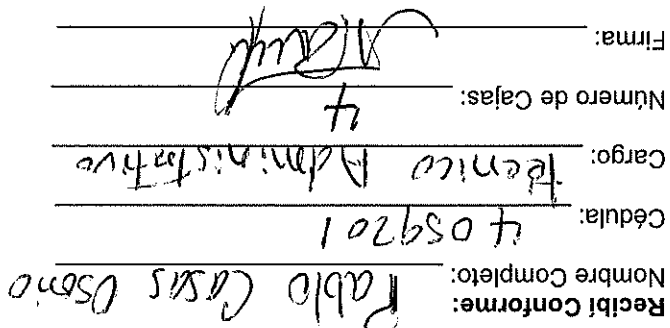 Recibí Conforme:
Nombre Completo: Pablo Casas Osorio
Cédula: 4059201
Cargo: técnico Administrativo
Número de Cajas: 4
Firma: